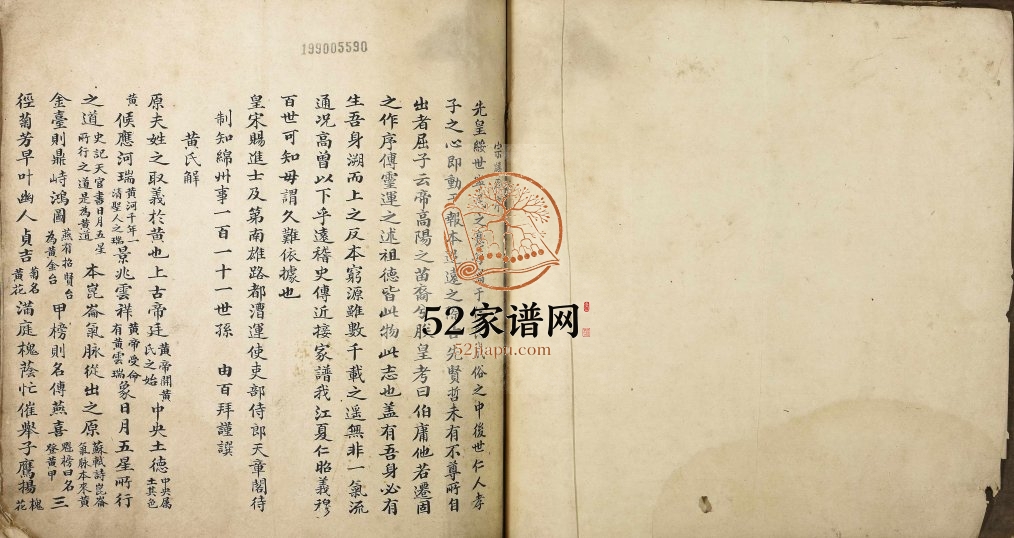 199005590
先皇綏世
俗之中後世仁人孝
子之心即動于報本追遠之
先賢哲未有不尊所自
出者屈子云帝高陽之苗裔兮朕皇考曰伯庸他若遷固
之作序傳靈運之述祖德皆此物此志也蓋有吾身必有
生吾身溯而上之反本窮源雖數千載之遥無非一氣流
通况高曾以下乎遠稽史傳近接家譜我江夏仁昭義穆
百世可知毋謂久難依據也
皇宋賜進士及第南雄路都漕運使吏部侍郎天章閣待
制知綿州事一百一十一世孫 由百拜謹譔
黄氏解
原夫姓之取義於黄也上古帝廷黄帝開黄氏之始中央土德中央属土其色
黄候應河瑞黄河千年一清聖人之瑞景兆雲祥黄帝受命有黄雲瑞象日月五星所行
之道史記天官書日月五星所行之道是為黄道本崑崙氣脉從出之原蘇軾詩崑崙氣脉本來黄
金臺則鼎峙鴻圖燕有招賢台為黄金台甲榜則名傳燕喜魁榜曰名登黄甲三
徑菊芳早叶幽人貞吉菊名黄花滿庭槐蔭忙催舉子鷹揚槐花
52家谱网
52jiapu.com